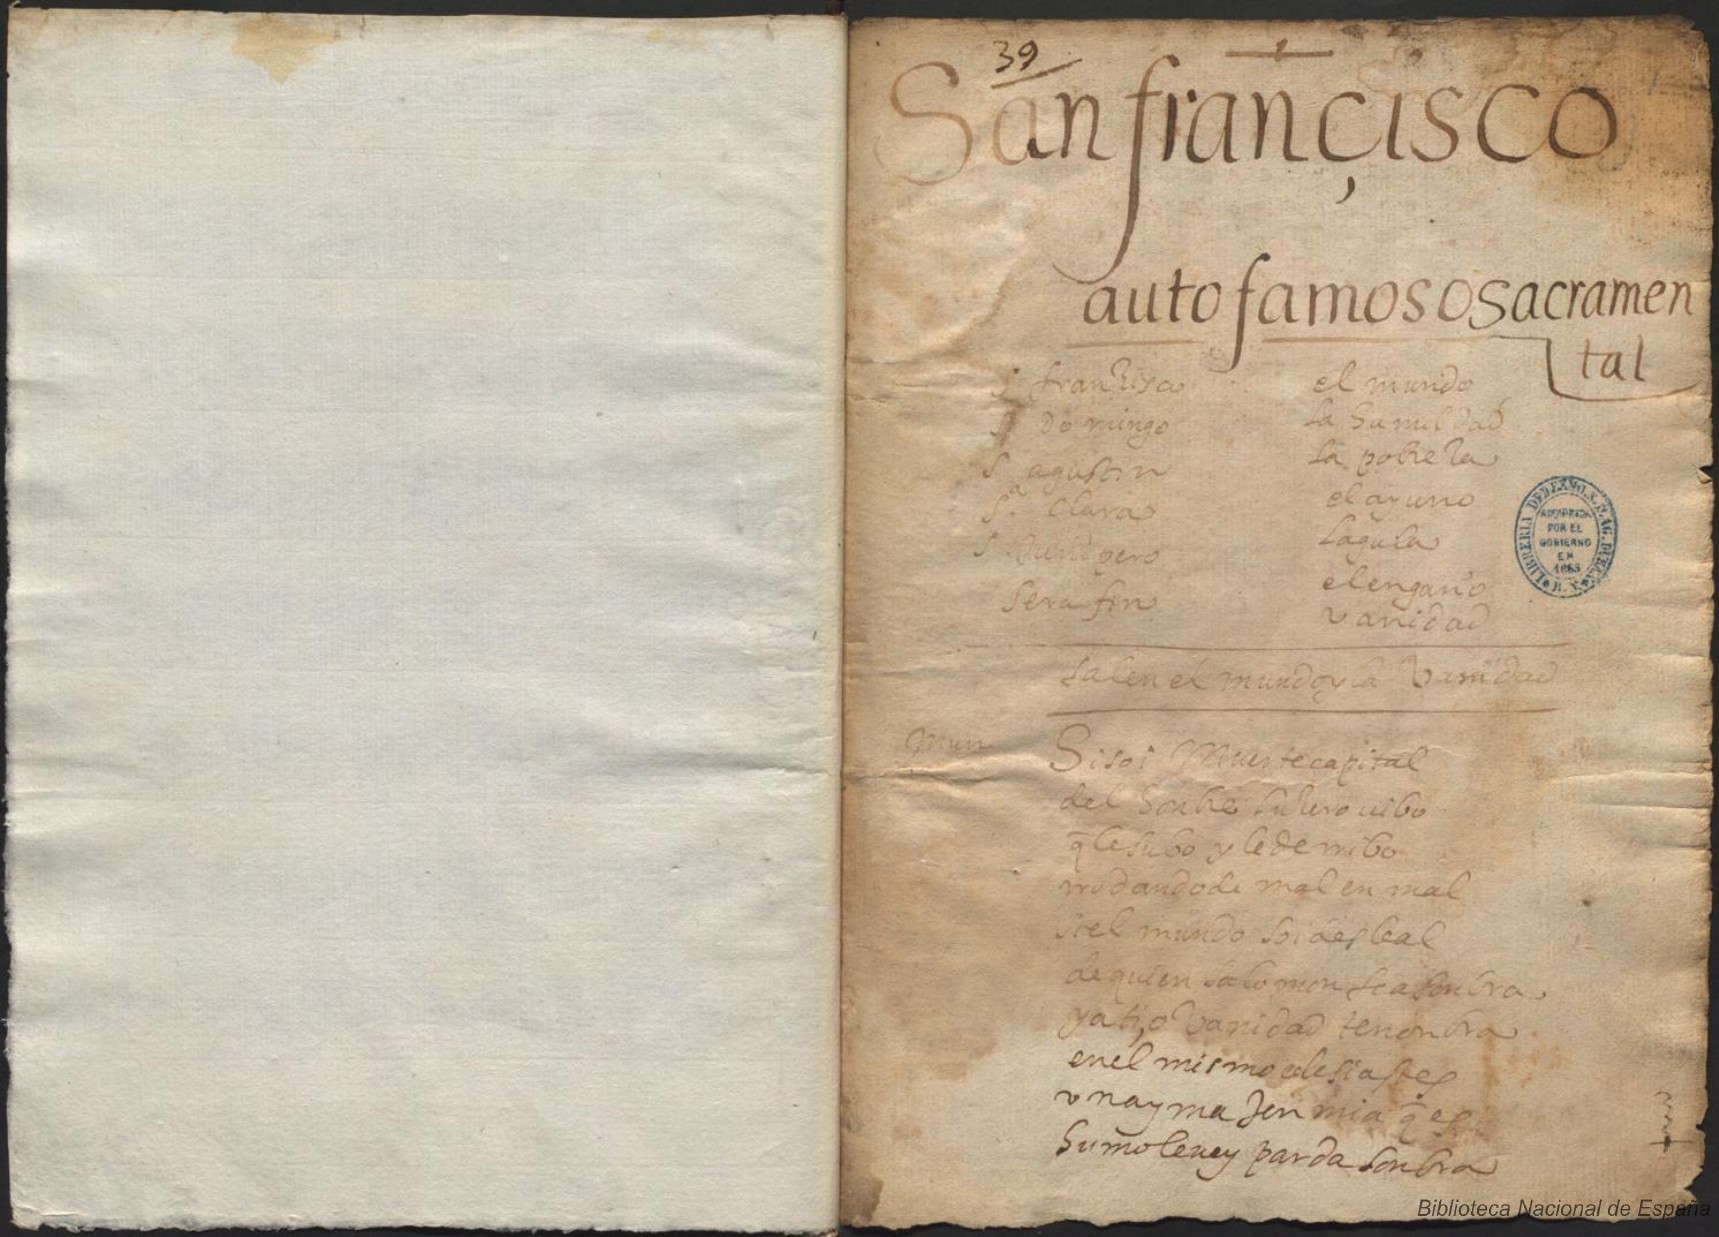 39
San françisco
auto famoso sacramen
tal
s. françisco
s. domingo
s. agustin
s.ª clara
s. Junipero
serafin
el mundo
la humildad
la pobreza
el ayuno
la gula
el engaño
vanidad
salen el mundo y la Vanidad
Mun
Si soi Muerte capital
del honbre
q̄ le subo y le derribo
rrodando de mal en mal
si el mundo soi desleal
de quien salomon se asonbra
y a ti, o Vanidad te nonbra
en el mismo eclesiastes
vna ymajen mia q̄ es
humo leue y parda sonbra
LIBRERIA DEL EXMO. S. D. AG. DURAN
ADQUIRIDA
POR EL
GOBIERNO
EN
1863
B. N.
Biblioteca Nacional de España